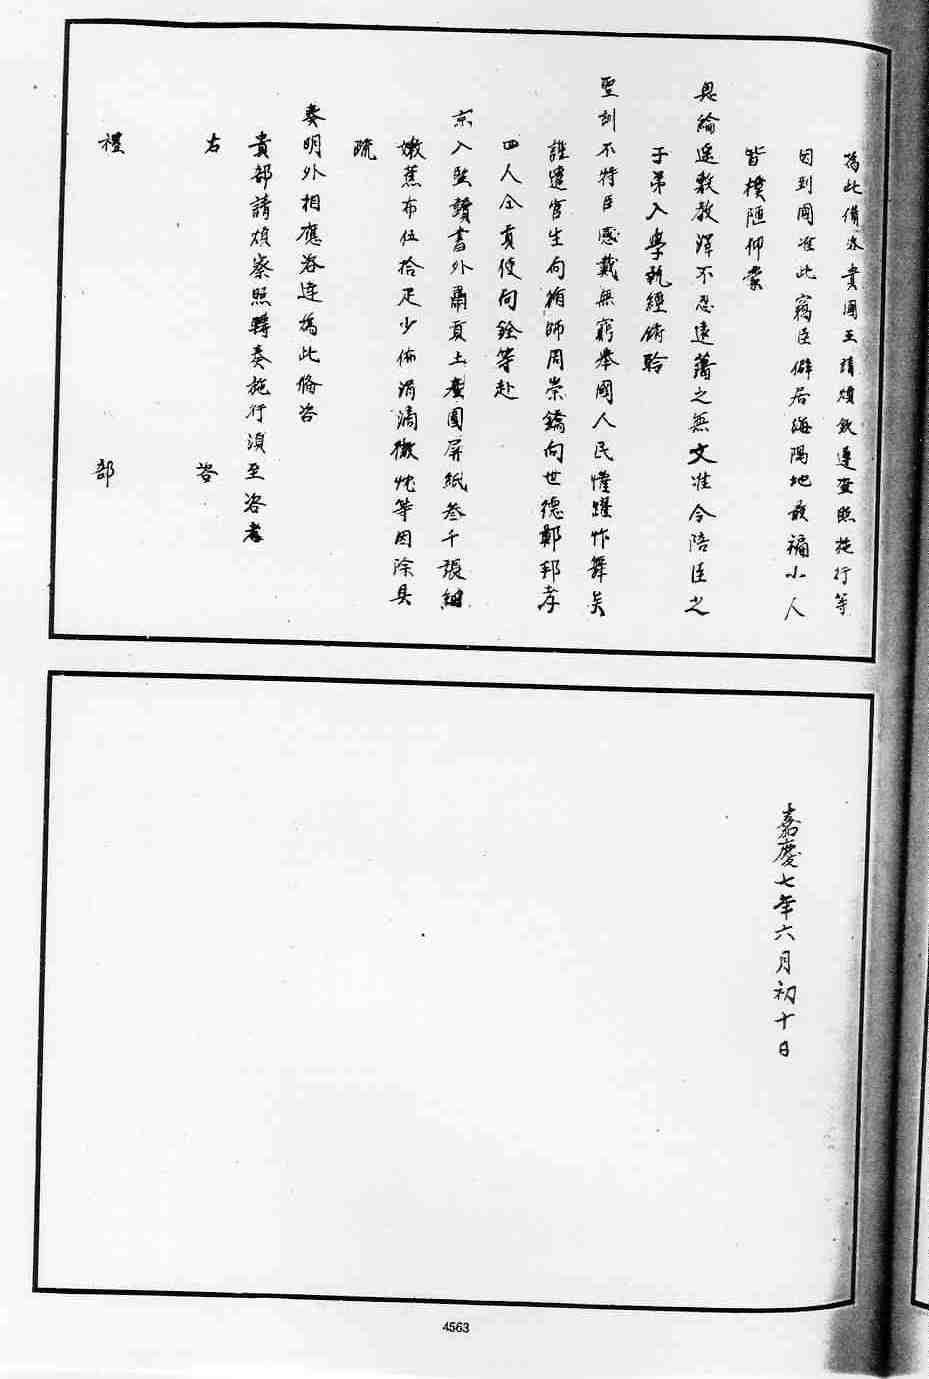 為此備咨貴國王請煩欽遵查照施行等
因到國准此竊臣僻居海隅地最褊小人
皆樸陋仰蒙
恩綸遥敷教澤不忍遠藩之無文准令陪臣之
子弟入學執經俯聆
聖訓不特臣感戴無窮舉國人民懽躍忭舞矣
謹遣官生向循師周崇鐈向世德鄭邦孝
四人仝貢使向銓等赴
京入監讀書外肅貢土產圍屏紙叁千張細
嫩蕉布伍拾疋少佈涓滴微忱等因除具
疏
奏明外相應咨達為此備咨
貴部請煩察照轉奏施行湏至咨者
右咨
禮部
嘉慶七年六月初十日
4563